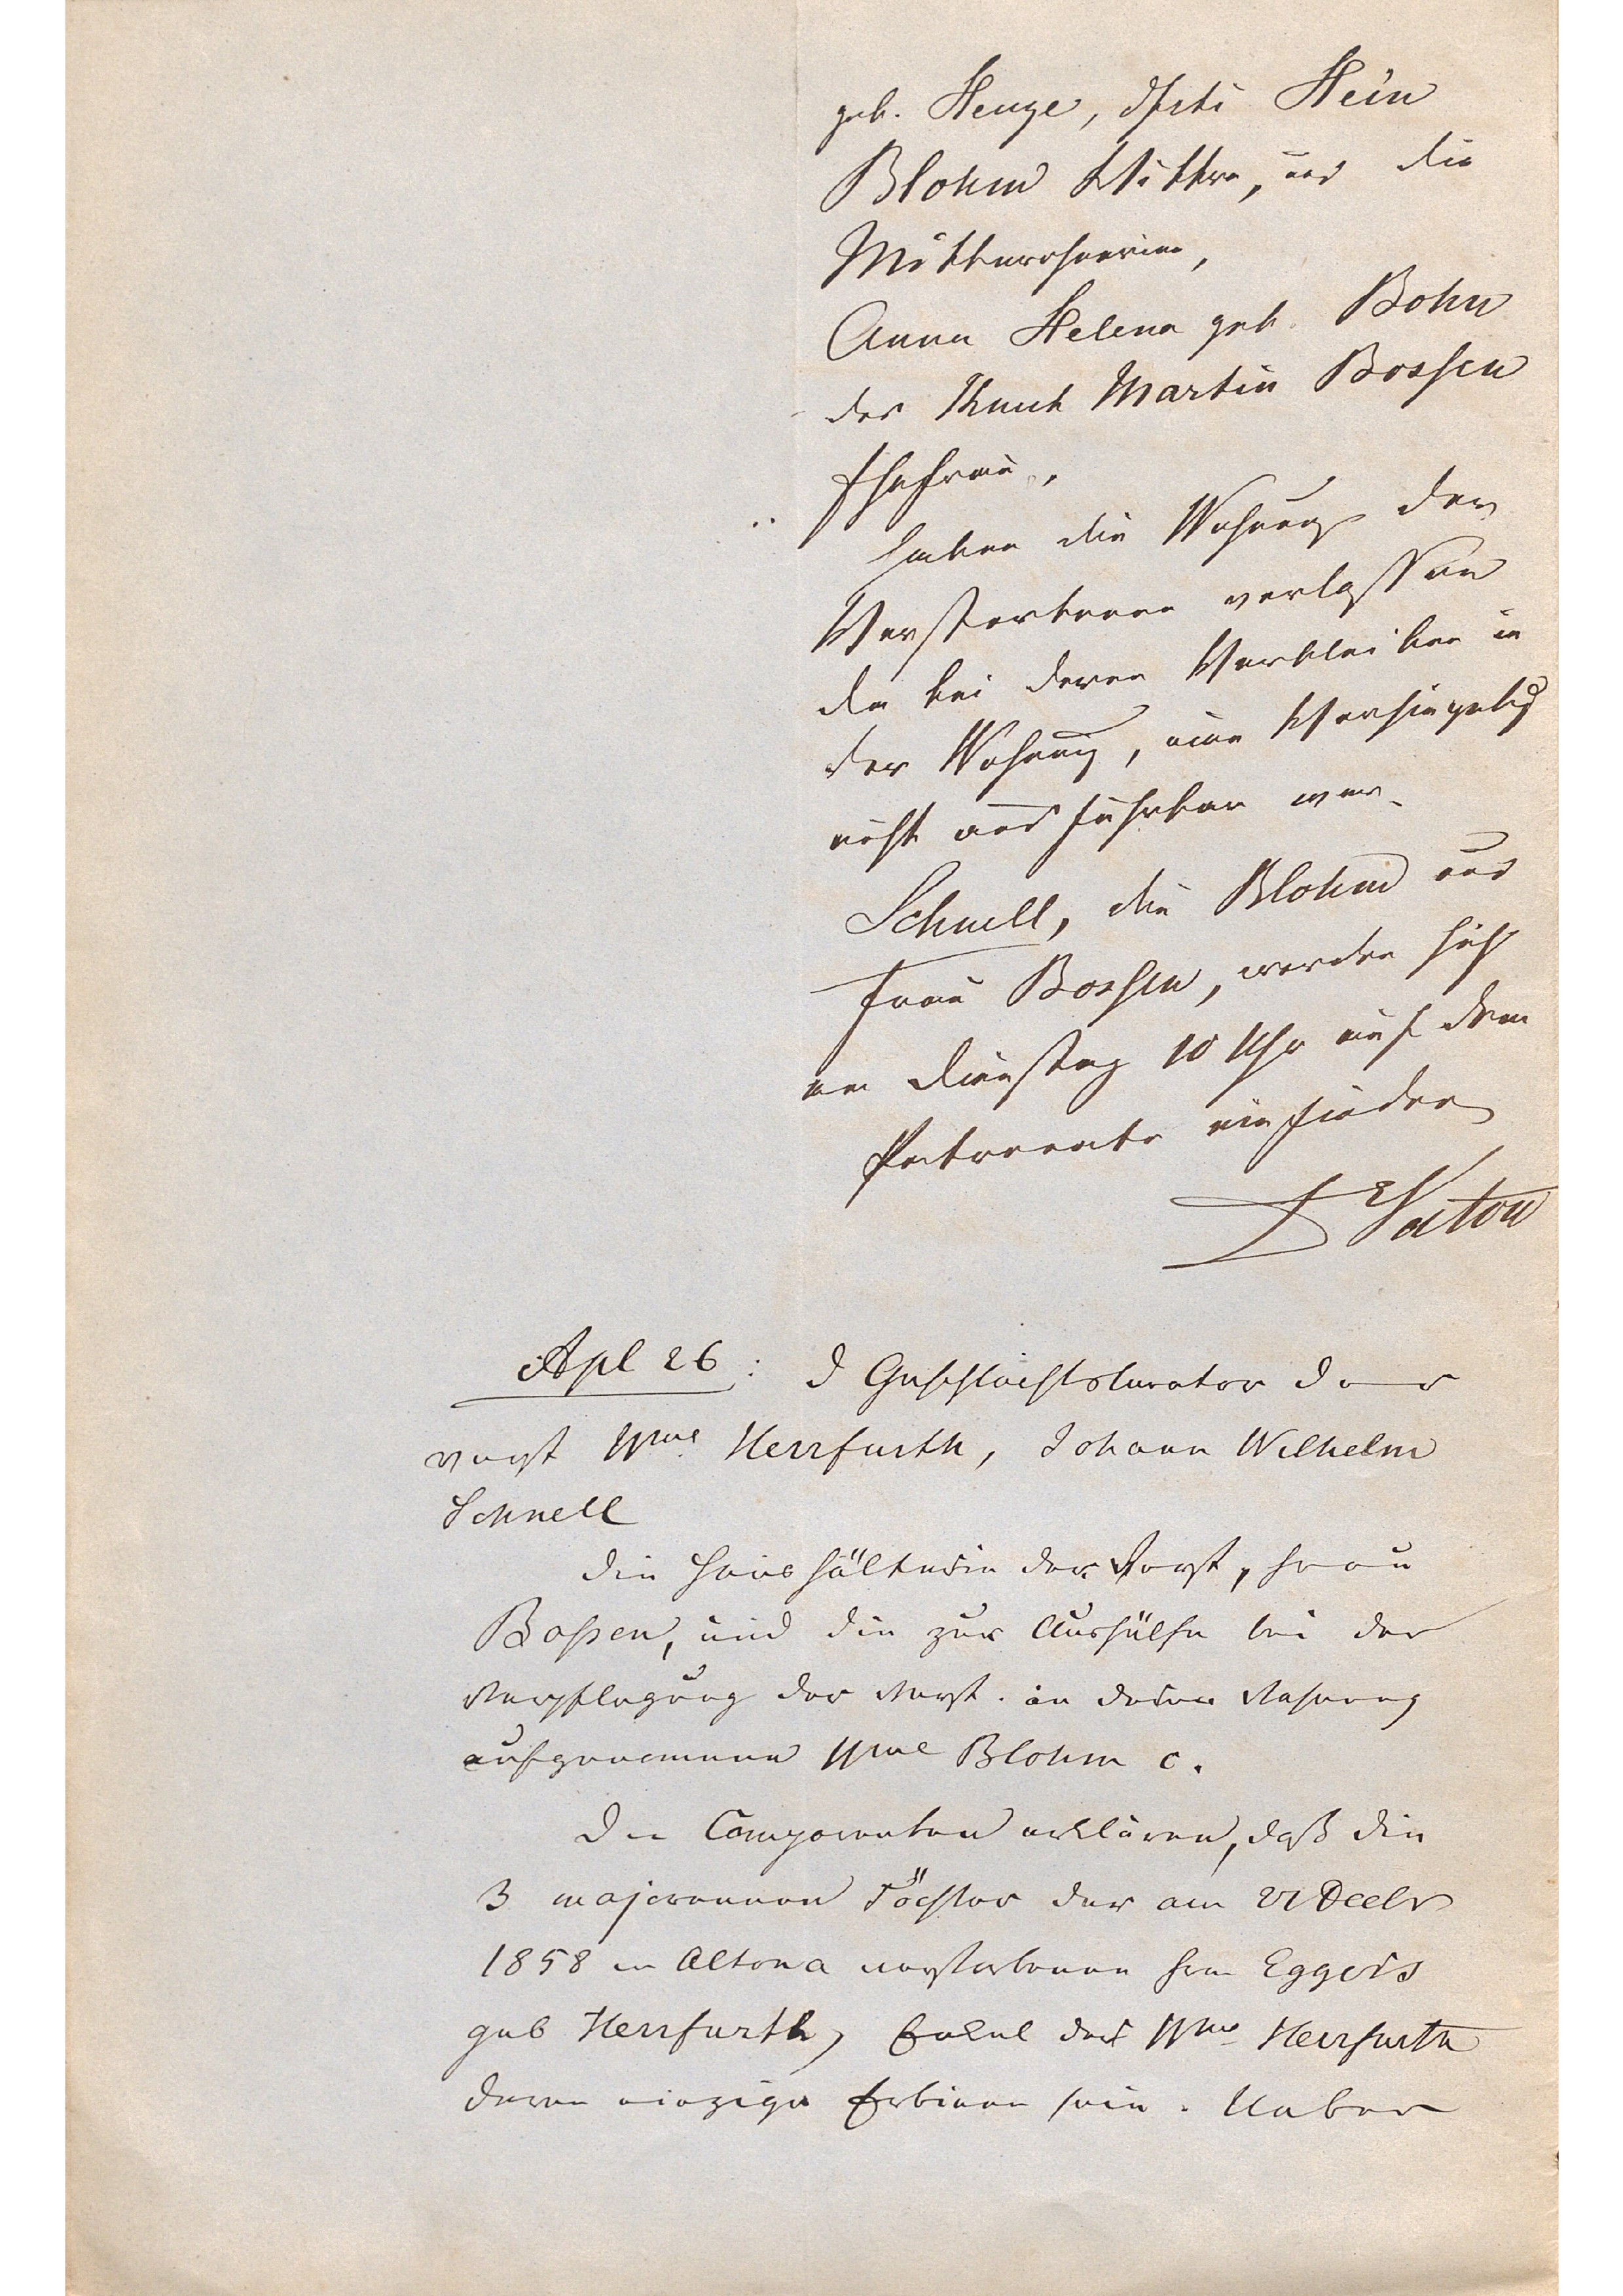 geb. Henze, Hein
Blohm Wittwe, und die
Mitbewohnerinn,
Anna Helena geb. Bohn
des Knut Martin Bossen
Ehefrau,
haben die Wohnung der
Verstorbenen verlassen
da bei deren Verbleiben in
der Wohnung, eine Versiegelung
nicht ausführbar war.
Schnell, die Blohm und
Frau Bossen, werden sich
am Dienstag 10 Uhr auf dem
einfinden
Apl 26: D Geschlechtscurator der
verst Wwe Herrfurth, Johann Wilhelm
Schnell
die Haushälterin der Verst, Frau
Bossen, und die zur Aushülfe bei der
Verpflegung der Verst. in deren Wohnung
aufgenommene Wwe Blohm c.
Die Comparenten erklären, daß die
3 majorennen Töchter der am Decbr
1858 in Altona verstorbenen Frau Eggers
geb Herrfurth, Enkel der Wwe Herrfurth
deren einzige Erbinnen seien. Ueber